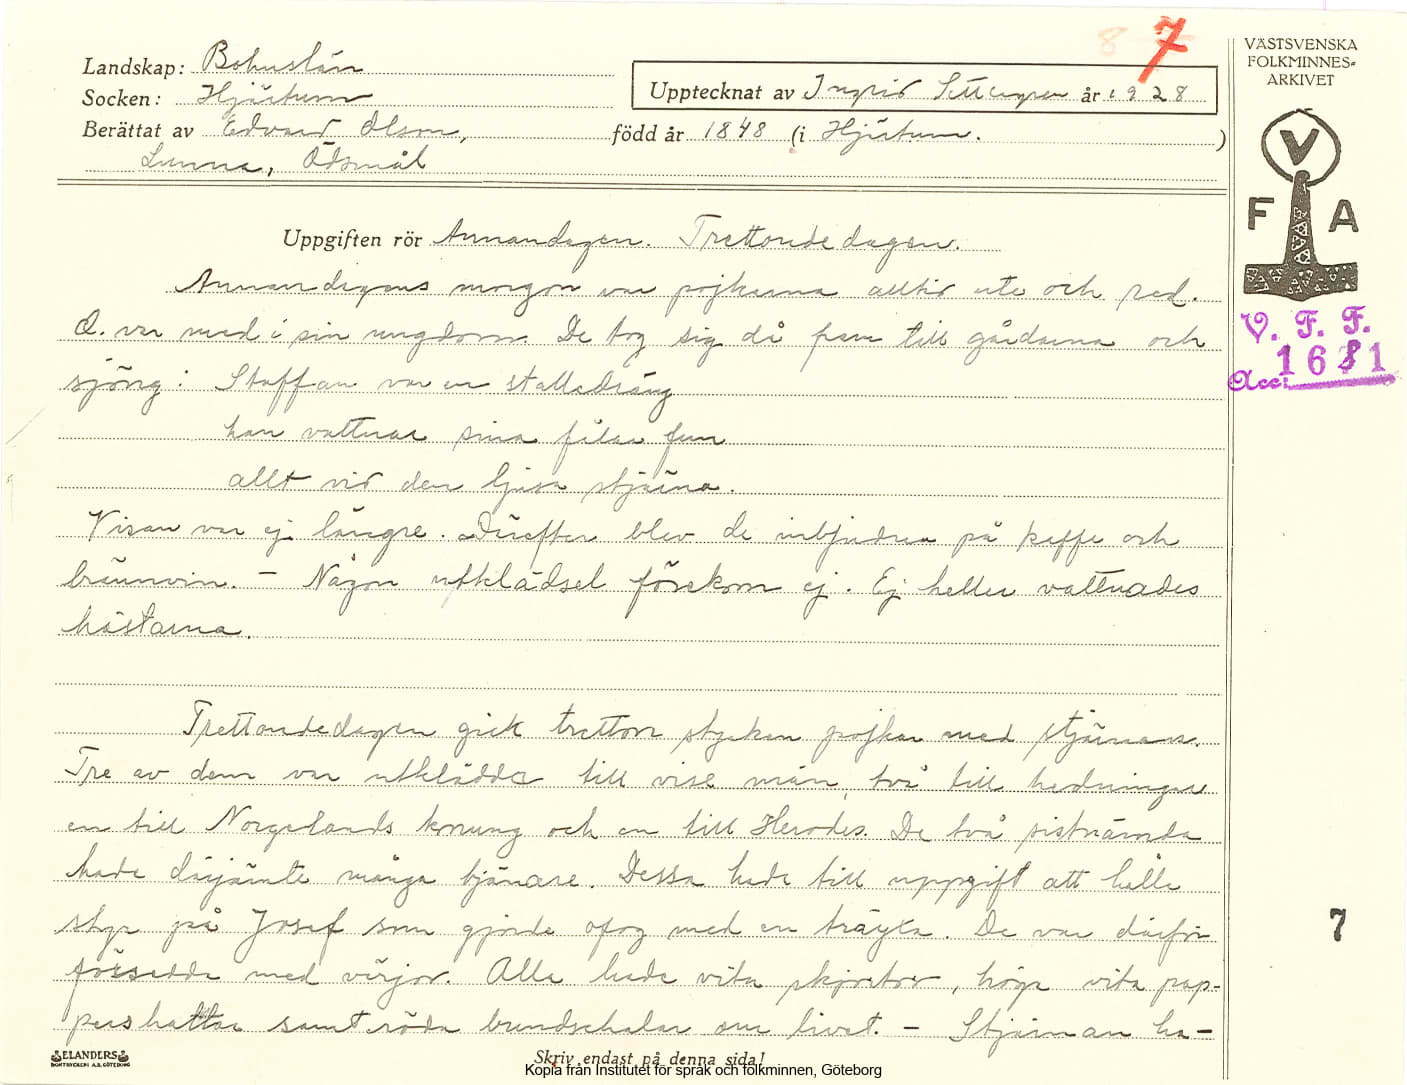 8 7
Landskap: Bohuslän
Socken: Hjärtum
Upptecknat av Ingrid år 1928
Berättat av Edvard Olson, född år 1848 (i Hjärtum. )
Lunna, Ödsmål
Uppgiften rör Annandagen. Trettondedagen.
Annandagens morgon var pojkarna alltid ute och red.
O. var med i sin ungdom. De tog sig då fram till gårdarna och
sjöng: Staffan var en stalledräng
han vattnar sina fålar fem
allt vid den ljusa stjärna.
Visan var ej längre. Därefter blev de inbjudna på kaffe och
brännvin. – Någon utklädsel förekom ej. Ej heller vattnades
hästarna.
Trettondedagen gick tretton stycken pojkar med stjärnan.
Tre av dem var utklädda till vise män, två till hedningar
en till Norgelands konung och en till Herodes. De två sistnämda
hade därjämte många tjänare. Dessa hade till uppgift att hålla
styr på Josef som gjorde ofog med en träyxa. De var därför
försedda med värjor. Alla hade vita skjortor, höga vita pap-
pershattar samt röda bundschalar om livet. – Stjärnan ha-
ELANDERS
BOKTRYCKERI A.B. GÖTEBORG
Skriv endast på denna sida!
Kopia från Institutet för språk och folkminnen, Göteborg
VÄSTSVENSKA
FOLKMINNES-
ARKIVET
V
F A
V. F. F.
Acc: 1681
7